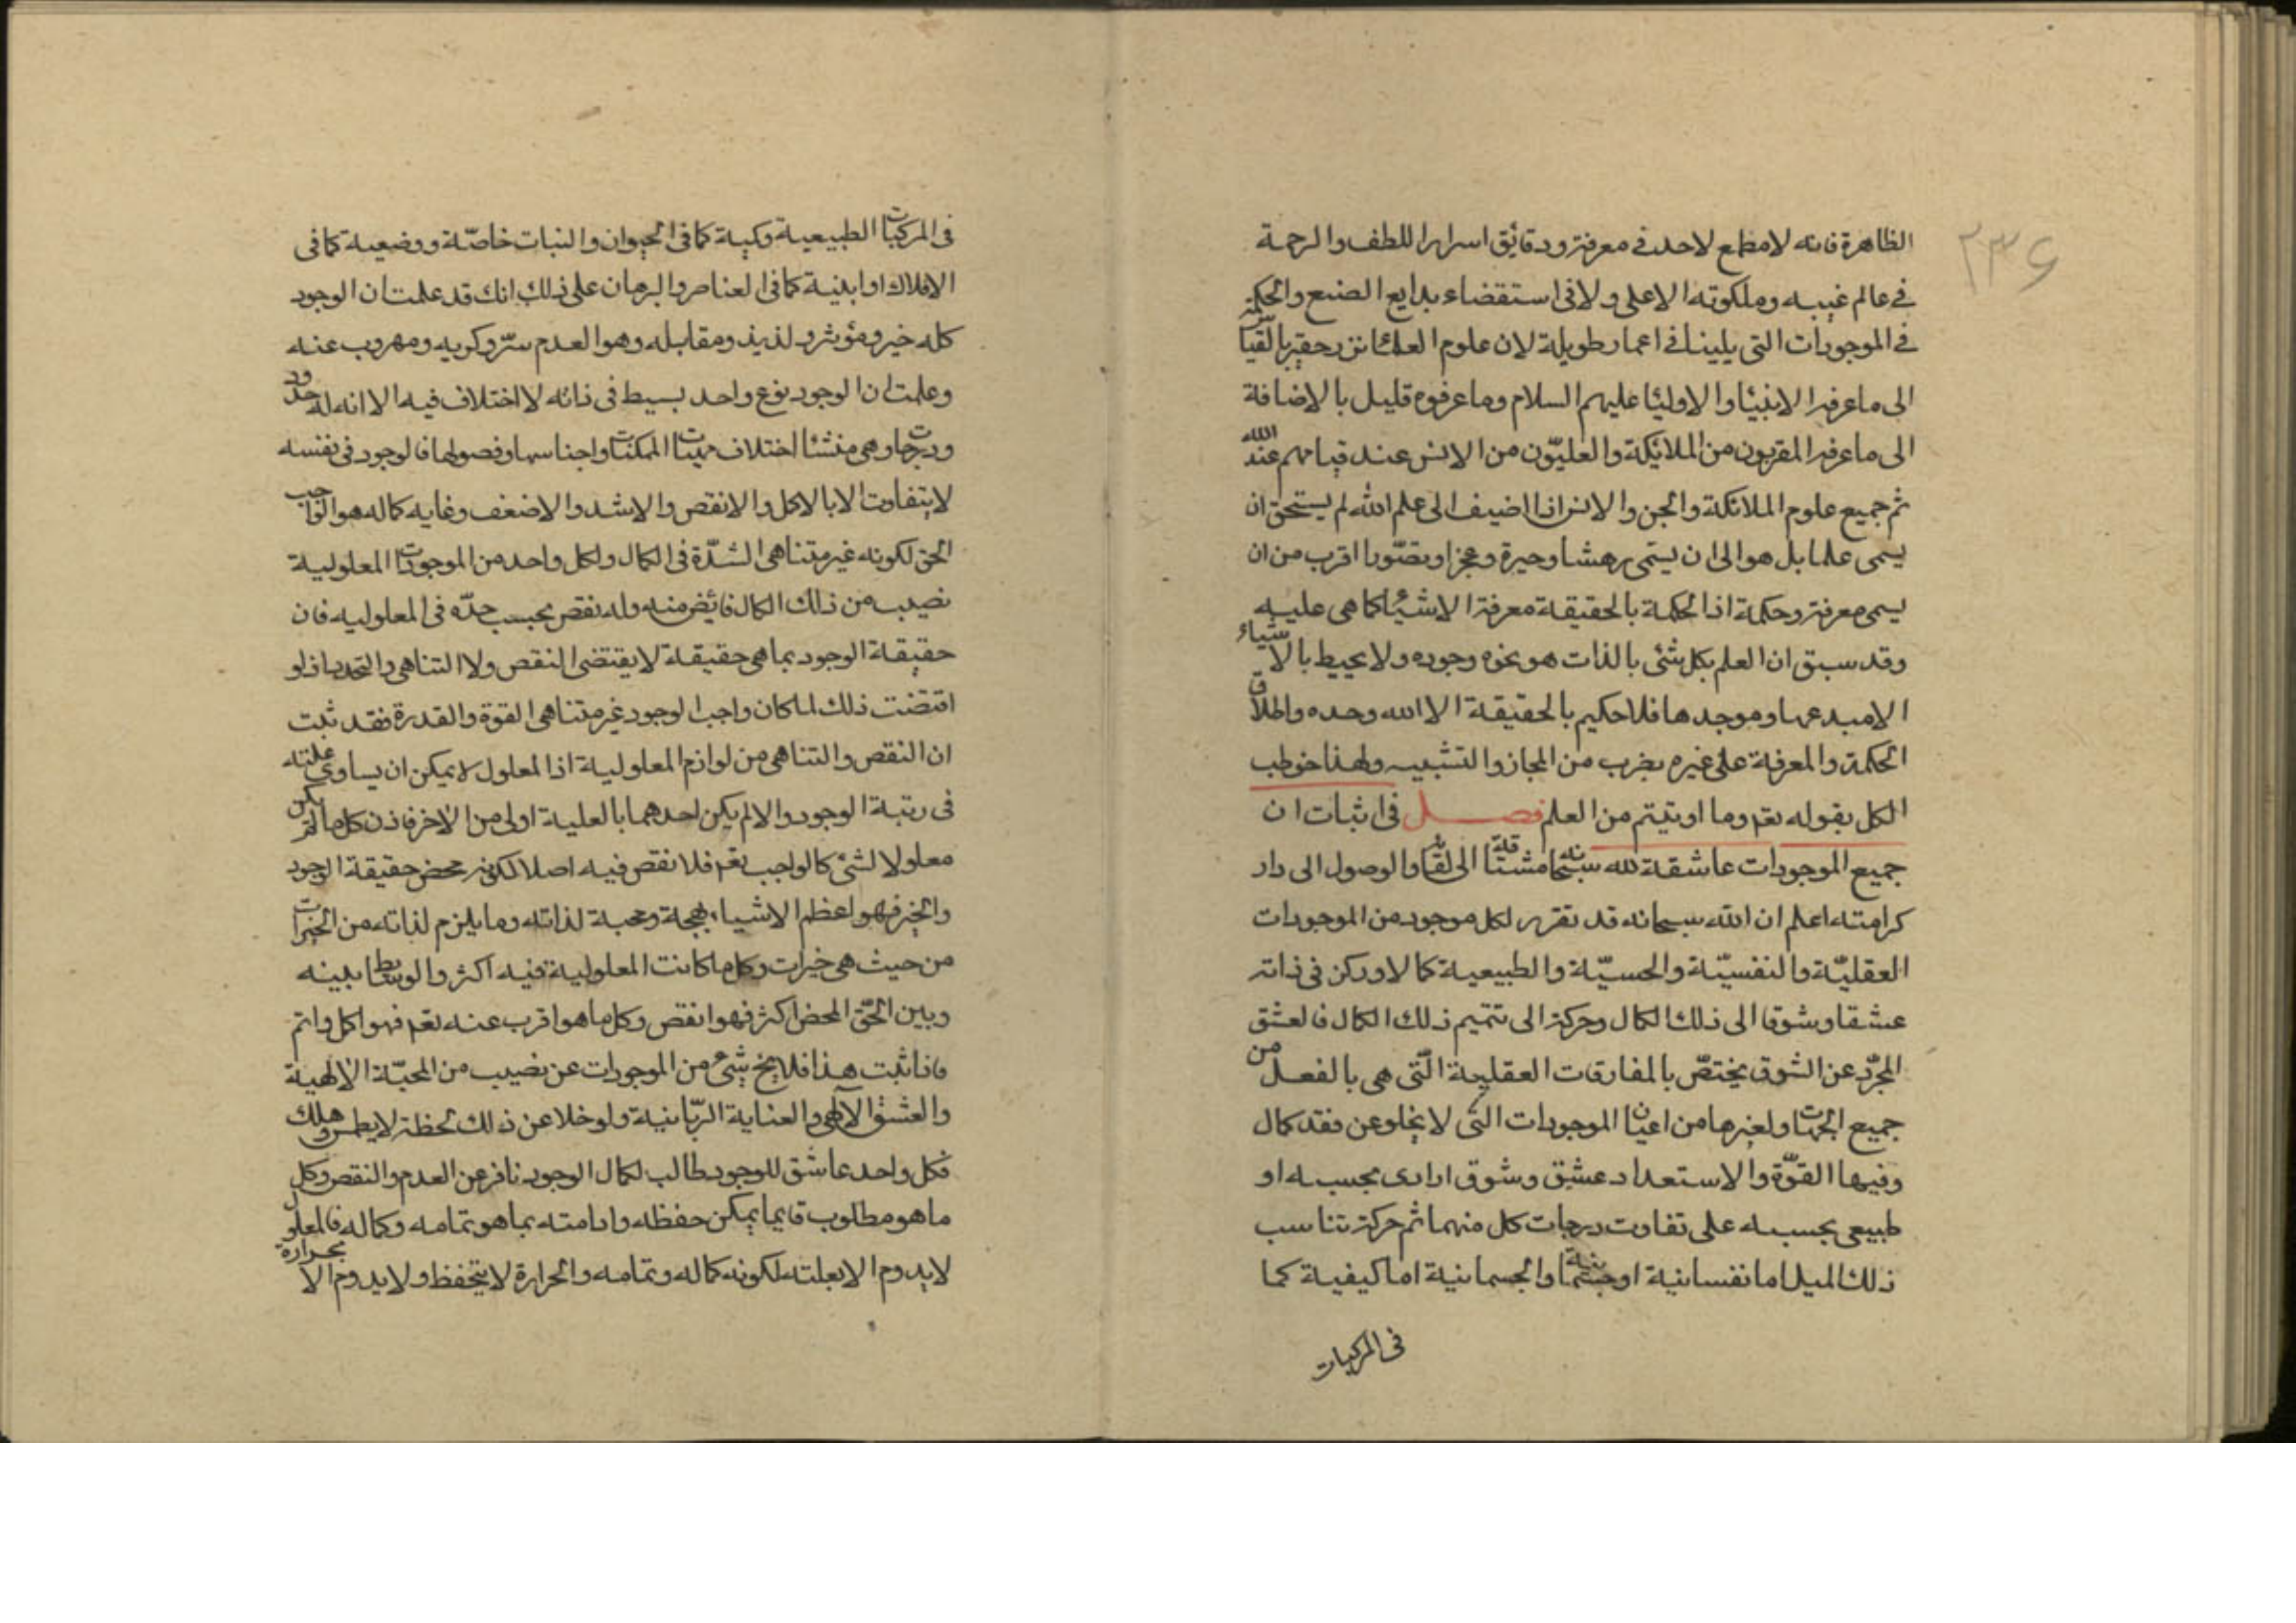 ٢٣۶
الظاهرة فانه لا مطمع لاحد فى معرفته ودقايق اسرار اللطف والرحمة
فى عالم غيبه وملكوته الاعلى ولا فى استقضاء بدايع الصنع والحكمة
فى الموجودات التى يلينا فى اعمار طويلة لان علوم العلمائنزر حقير بالقياس
الى ما عرفه الانبيا والاوليا عليهم السلام وما عرفوه قليل بالاضافة
الى ما عرفه المقربون من الملائكة والعليّون من الانس عند قيامهم عند الله
ثم جميع علوم الملائكة والجن والانس اذا اضيف الى علم الله لم يستحق ان
يسمى علما بل هو الى ان يسمى دهشا وحيرة وعجزا وقصورا اقرب من ان
يسمى معرفة وحكمة اذ الحكمة بالحقيقة معرفة الاشياء كما هى عليه
وقد سبق ان العلم بكل شئى بالذات هو نحو وجوده ولا يحيط بالاشياء
الا مبدعها وموجدها فلا حكيم بالحقيقة الا الله وحده واطلاق
الحكمة والمعرفة على غيره بضرب من المجاز والتشبيه ولهذا خوطب
الكل بقوله تعم وما اوتيتم من العلم فصل فى اثبات ان
جميع الموجودات عاشقة لله سبحانه مشتاقة الى لقائه والوصول الى دار
كرامته اعلم ان الله سبحانه قد تقرر لكل موجود من الموجودات
العقليّة والنفسيّة والحسيّة والطبيعية كمالا وركن فى ذاته
عشقا وشوقا الى ذلك الكمال وحركة الى تتميم ذلك الكمال فالعشق
المجرّد عن الشوق يختصّ بالمفارقات العقلية الّتى هى بالفعل من
جميع الجهات ولغيرها من اعيان الموجودات التى لا يخلو عن فقد كمال
وفيها القوّة والاستعداد عشق وشوق ارادى بحسبه او
طبيعى بحسبه على تفاوت درجات كل منهما ثم حركة تناسب
ذلك الميل اما نفسانية او جسمانية والجسمانية اما كيفية كما
فى المركبات
فى المركبات الطبيعية وكمية كما فى الحيوان والنبات خاصّة ووضعية كما فى
الافلاك او اينية كما فى العناصر والبرهان على ذلك انك قد علمت ان الوجود
كله خير ومؤثر ولذيذ ومقابله وهو العدم شرّ وكريه ومهروب عنه
وعلمت ان الوجود نوع واحد بسيط فى ذاته لا اختلاف فيه الا انه له حدود
ودرجات وهى منشئا اختلاف مهيات الممكنات واجناسها وفصولها فالوجود فى نفسه
لا يتفاوت الا بالاكمل والانقص والاشد والاضعف وغايه كماله هو الواجب
الحق لكونه غير متناهى الشدّة فى الكمال ولكل واحد من الموجودات المعلولية
نصيب من ذلك الكمال فائض منه وله نقص بحسب حدّه فى المعلوليه فان
حقيقة الوجود بما هى حقيقة لا يقتضى النقص ولا التناهى والتحديد اذ لو
اقتضت ذلك لما كان واجب الوجود غير متناهى القوة والقدرة فقد ثبت
ان النقص والتناهى من لوازم المعلولية اذ المعلول لا يمكن ان يساوى علته
فى رتبة الوجود والا لم يكن احدهما بالعلية اولى من الاخر فاذن كل ما لم يكن
معلولا لشئى كالواجب تعم فلا نقص فيه اصلا لكونه محض حقيقة الوجود
والخير فهو اعظم الاشياء بهجة ومحبة لذاته وما يلزم لذاته من الخيرات
من حيث هى خيرات وكل ما كانت المعلولية فيه اكثر والوسايط بينه
وبين الحّق المحض اكثر فهو انقص وكل ما هو اقرب عنه تعم فهو اكمل واتم
فاذا ثبت هذا فلا يخ شئ من الموجودات عن نصيب من المحبّة الالهية
والعشق الالهى والعناية الربّانية ولو خلا عن ذلك لحظة لا يطمس وهلك
فكل واحد عاشق للوجود طالب لكمال الوجود نافر عن العدم والنقص وكل
ما هو مطلوب فايما يمكن حفظه وادامته بما هو تمامه وكماله فالمعلول
لا يدوم الا بعلته لكونه كماله وتمامه والحرارة لا يتحفظ ولا يدوم الا بحرارة